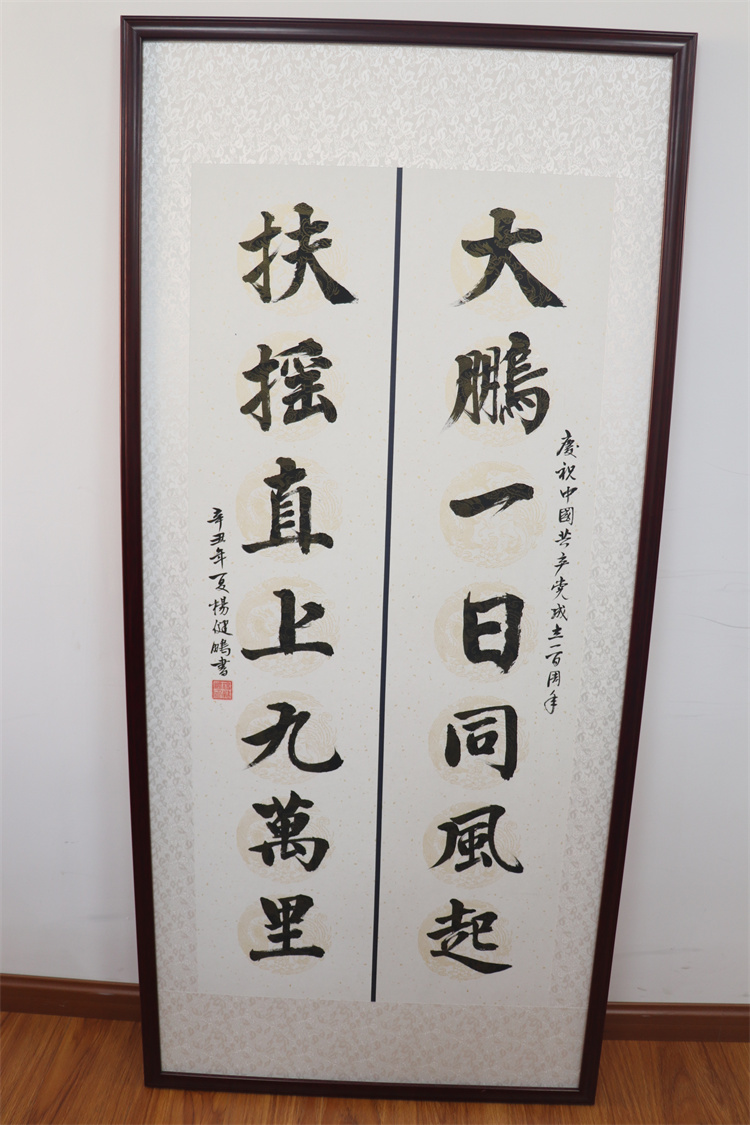 慶祝中國共产党成立一百周年
大鵬一日同風起
扶摇直上九萬里
辛丑年夏楊健鵬書